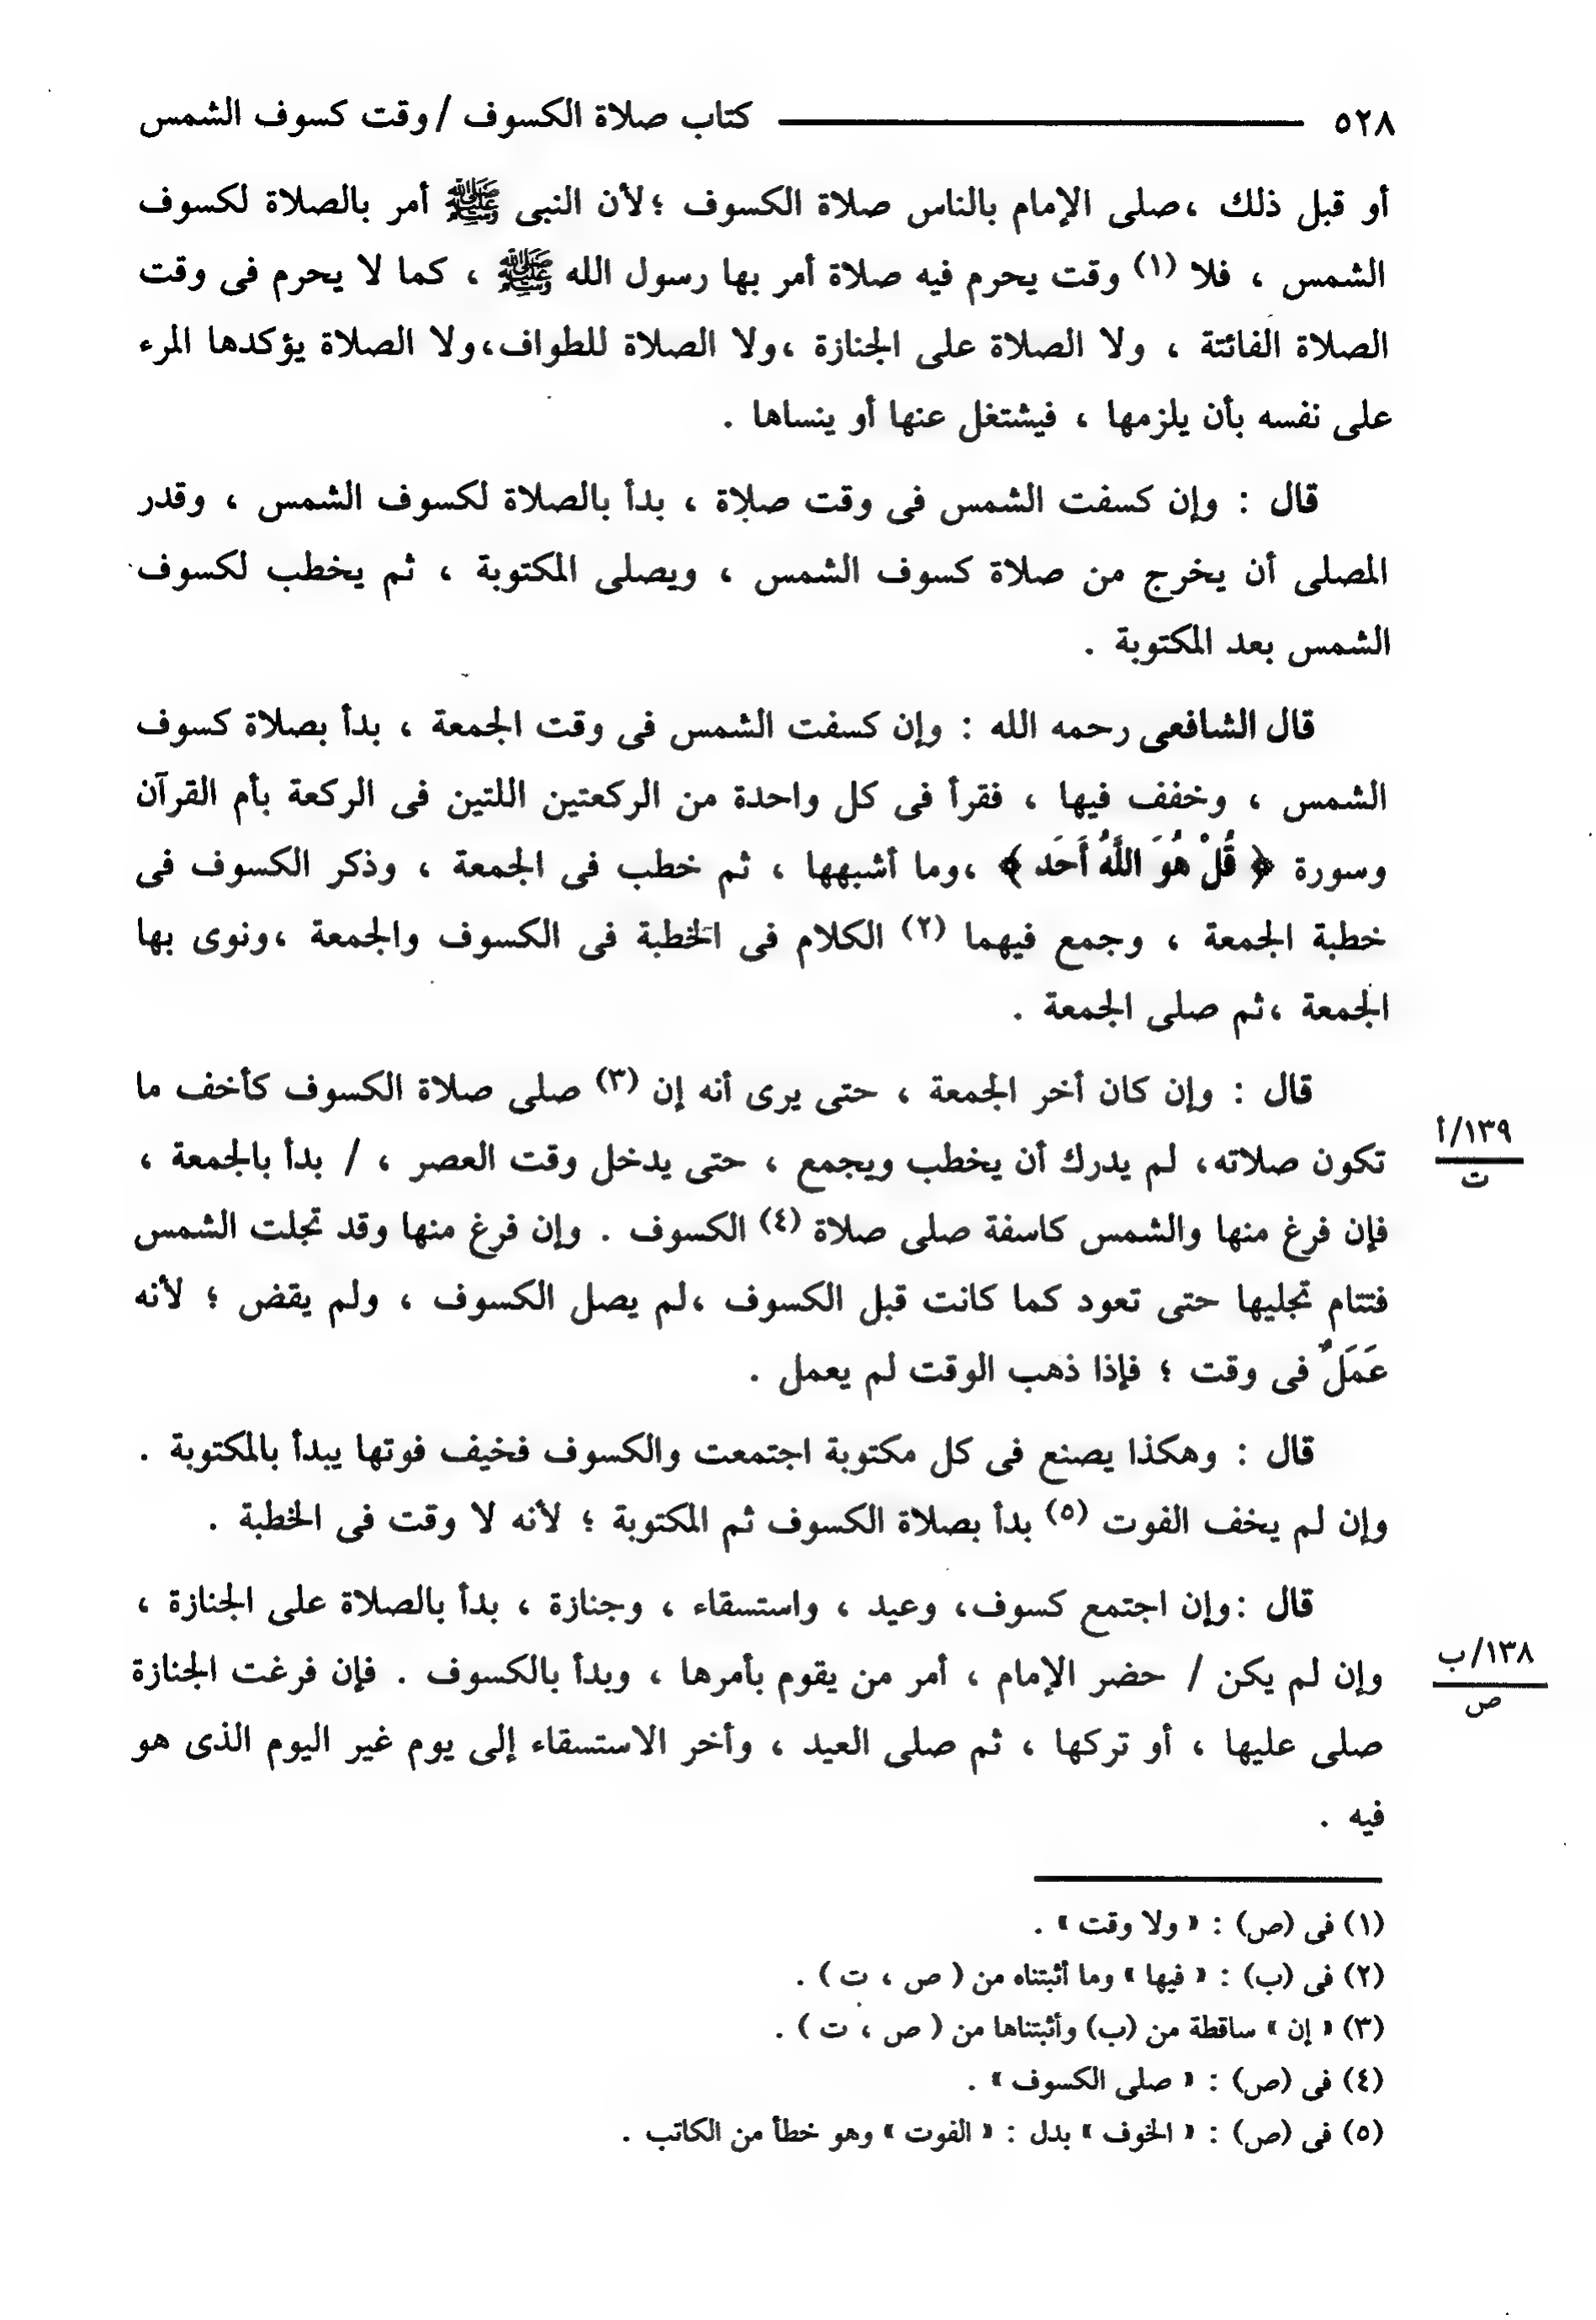 ٥٢٨ كتاب صلاة الكسوف / وقت كسوف الشمس
أو قبل ذلك ،صلى الإمام بالناس صلاة الكسوف ؛لأن النبى ﷺ أمر بالصلاة لكسوف
الشمس ، فلا (١) وقت يحرم فيه صلاة أمر بها رسول الله ﷺ ، كما لا يحرم فى وقت
الصلاة الفائتة ، ولا الصلاة على الجنازة ،ولا الصلاة للطواف،ولا الصلاة يؤكدها المرء
على نفسه بأن يلزمها ، فيشتغل عنها أو ينساها .
قال : وإن كسفت الشمس فى وقت صلاة ، بدأ بالصلاة لكسوف الشمس ، وقدر
المصلى أن يخرج من صلاة كسوف الشمس ، ويصلى المكتوبة ، ثم يخطب لكسوف
الشمس بعد المكتوبة .
قال الشافعى رحمه الله : وإن كسفت الشمس فى وقت الجمعة ، بدأ بصلاة كسوف
الشمس ، وخفف فيها ، فقرأ فى كل واحدة من الركعتين اللتين فى الركعة بأم القرآن
وسورة ﴿ قُلْ هُوَ اللَّهُ أَحَد ﴾ ،وما أشبهها ، ثم خطب فى الجمعة ، وذكر الكسوف فى
خطبة الجمعة ، وجمع فيهما (٢) الكلام فى الخطبة فى الكسوف والجمعة ،ونوى بها
الجمعة ،ثم صلى الجمعة .
قال : وإن كان أخر الجمعة ، حتى يرى أنه إن (٣) صلى صلاة الكسوف كأخف ما
تكون صلاته، لم يدرك أن يخطب ويجمع ، حتى يدخل وقت العصر ، / بدأ بالجمعة ،
١٣٩/أ
ت
فإن فرغ منها والشمس كاسفة صلى صلاة (٤) الكسوف . وإن فرغ منها وقد تجلت الشمس
فتتام تجليها حتى تعود كما كانت قبل الكسوف ،لم يصل الكسوف ، ولم يقض ؛ لأنه
عَمَلٌ فى وقت ؛ فإذا ذهب الوقت لم يعمل .
قال : وهكذا يصنع فى كل مكتوبة اجتمعت والكسوف فخيف فوتها يبدأ بالمكتوبة .
وإن لم يخف الفوت (٥) بدأ بصلاة الكسوف ثم المكتوبة ؛ لأنه لا وقت فى الخطبة .
قال :وإن اجتمع كسوف، وعيد ، واستسقاء ، وجنازة ، بدأ بالصلاة على الجنازة ،
وإن لم يكن / حضر الإمام ، أمر من يقوم بأمرها ، وبدأ بالكسوف . فإن فرغت الجنازة
١٣٨/ب
ص
صلى عليها ، أو تركها ، ثم صلى العيد ، وأخر الاستسقاء إلى يوم غير اليوم الذى هو
فيه .
(١) فى (ص) : « ولا وقت » .
(٢) فى (ب) : « فيها » وما أثبتناه من ( ص ، ت ) .
(٣) « إن » ساقطة من (ب) وأثبتناها من ( ص ، ت ) .
(٤) فى (ص) : « صلى الكسوف » .
(٥) فى (ص) : « الخوف » بدل : « الفوت » وهو خطأ من الكاتب .